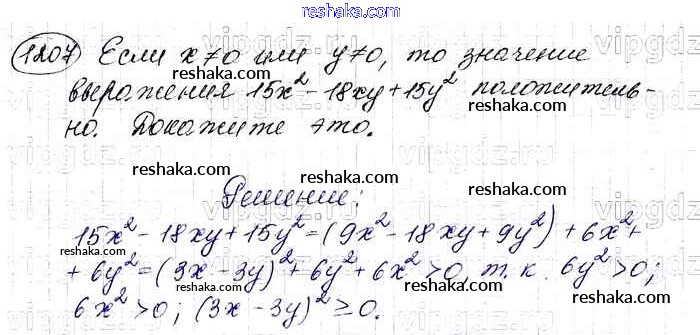 reshaka.com
1207 Если x≠0 или y≠0, то значение
выражения 15x² - 18xy + 15y² положитель-
но. Докажите это.
reshaka.com
reshaka.com
reshaka.com
Решение:
reshaka.com
15x² - 18xy + 15y² = (9x² - 18xy + 9y²) + 6x² +
+ 6y² = (3x - 3y)² + 6y² + 6x² > 0, т.к. 6y² > 0;
6x² > 0; (3x - 3y)² ≥ 0.
reshaka.com
reshaka.com
reshaka.com